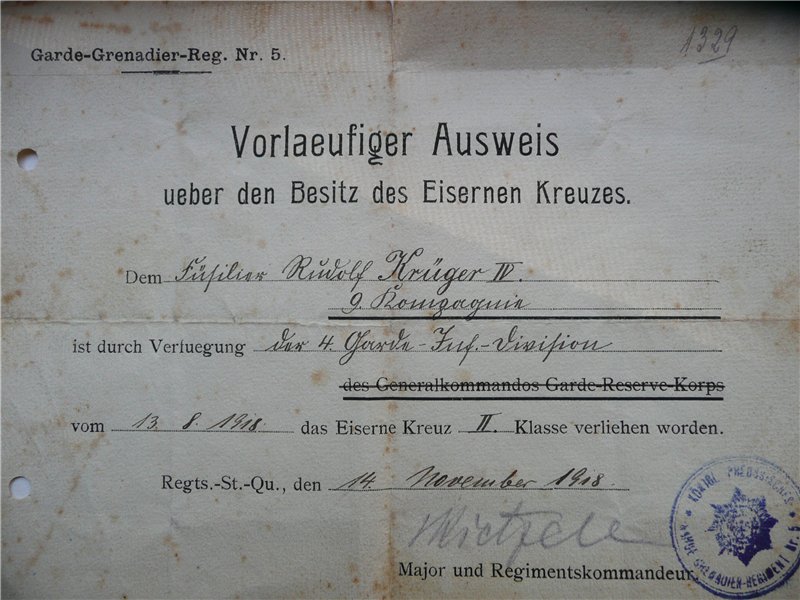 Garde-Grenadier-Reg. Nr. 5.
1329
Vorlaeufiger Ausweis
ueber den Besitz des Eisernen Kreuzes.
Dem Füsilier Rudolf Krüger IV.
9. Kompagnie
ist durch Verfuegung der 4. Garde-Inf.-Division
des Generalkommandos Garde-Reserve-Korps
vom 13. 8. 1918. das Eiserne Kreuz II. Klasse verliehen worden.
Regts.-St.-Qu., den 14. November 1918.
Major und Regimentskommandeur.
KÖNIGL. PREUSSISCHES
GARDE GRENADIER-REGIMENT Nr. 5